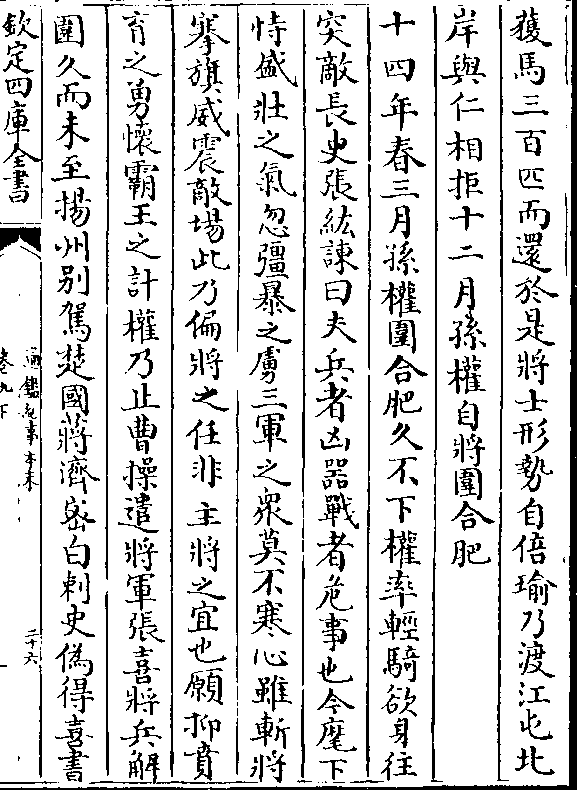 獲馬三百匹而還於是將士形勢自倍瑜乃渡江屯北
岸與仁相拒十二月孫權自將圍合肥
十四年春三月孫權圍合肥久不下權率輕騎欲身往
突敵長史張紘諫曰夫兵者凶器戰者危事也今麾下
恃盛壯之氣忽彊暴之虜三軍之衆莫不寒心雖斬將
搴旗威震敵場此乃偏將之任非主將之宜也願抑賁
育之勇懷霸王之計權乃止曹操遣將軍張喜將兵解
圍久而未至揚州别駕楚國蔣濟密白刺史偽得喜書
欽定四庫全書
通鑑紀事本末
卷九下
二十六